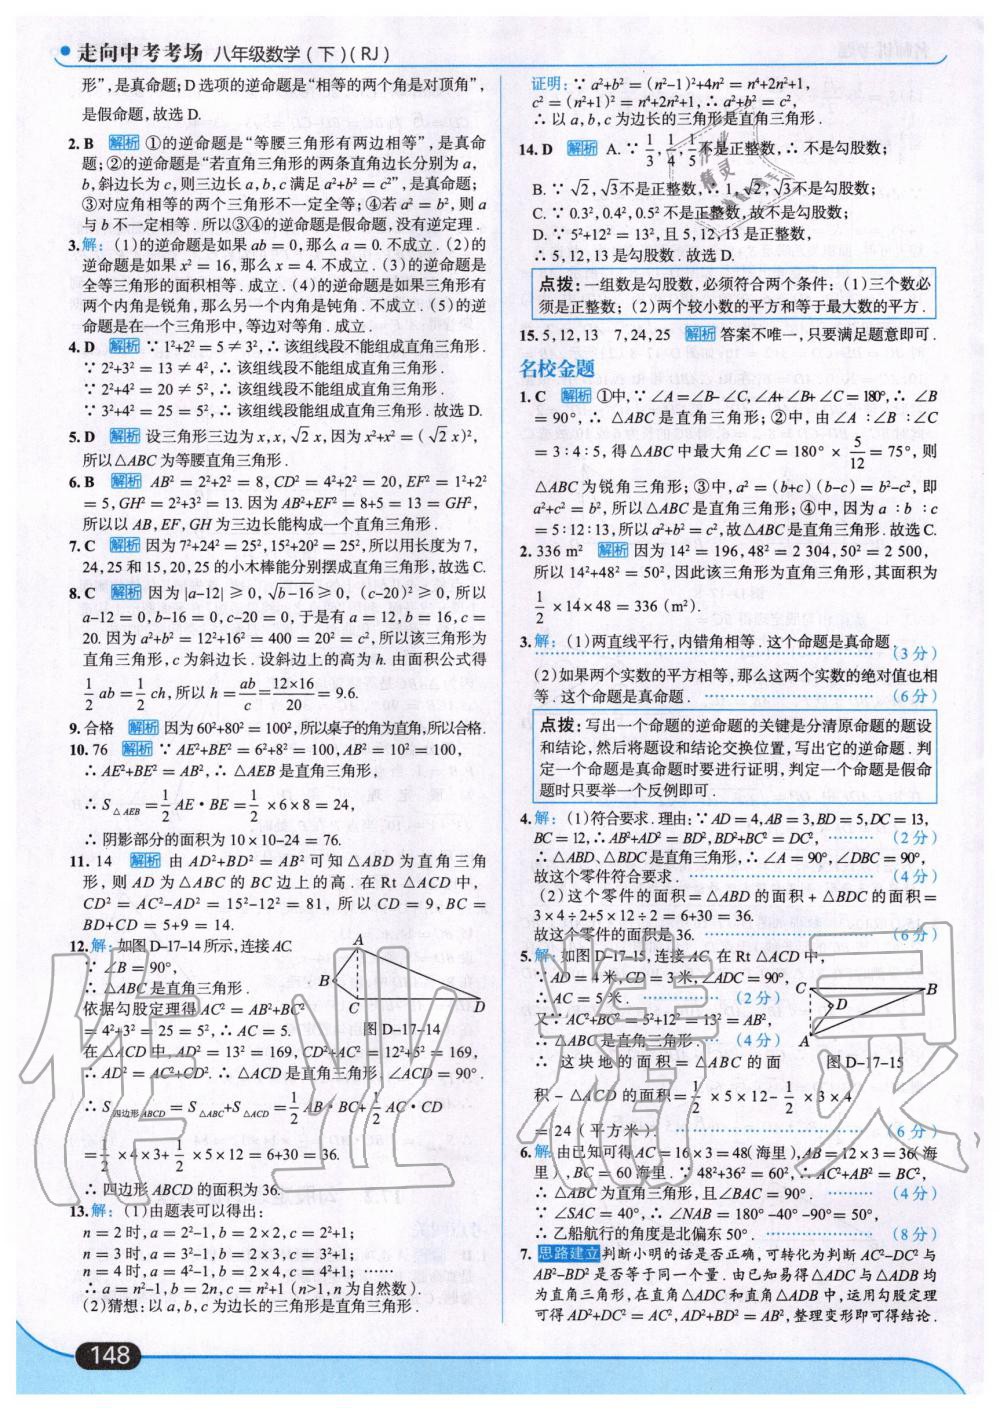 走向中考考场 八年级数学(下)(RJ)
形”,是真命题;D选项的逆命题是“相等的两个角是对顶角”,
是假命题,故选 D.
2. B 解析 ①的逆命题是“等腰三角形有两边相等”,是真命
题;②的逆命题是“若直角三角形的两条直角边长分别为 a,
b,斜边长为 c,则三边长 a,b,c 满足 a²+b² = c²”,是真命题;
③对应角相等的两个三角形不一定全等;④若 a² = b²,则 a
与 b 不一定相等. 所以③④的逆命题是假命题,没有逆定理.
3. 解:(1)的逆命题是如果 ab = 0,那么 a = 0. 不成立.(2)的
逆命题是如果 x² = 16,那么 x = 4. 不成立.(3)的逆命题是
全等三角形的面积相等. 成立.(4)的逆命题是如果三角形有
两个内角是锐角,那么另一个内角是钝角. 不成立.(5)的逆
命题是在一个三角形中,等边对等角. 成立.
4. D 解析 ∵ 1²+2² = 5 ≠ 3²,∴ 该组线段不能组成直角三角形.
∵ 2²+3² = 13 ≠ 4²,∴ 该组线段不能组成直角三角形.
∵ 2²+4² = 20 ≠ 5²,∴ 该组线段不能组成直角三角形.
∵ 3²+4² = 25 = 5²,∴ 该组线段能组成直角三角形. 故选 D.
5. D 解析 设三角形三边为 x,x,√2 x,因为 x²+x² = (√2 x)²,
所以△ABC 为等腰直角三角形.
6. B 解析 AB² = 2²+2² = 8,CD² = 4²+2² = 20,EF² = 1²+2²
= 5,GH² = 2²+3² = 13. 因为 AB²+EF² = 8+5 = 13 = GH²,
所以以 AB,EF,GH 为三边长能构成一个直角三角形.
7. C 解析 因为 7²+24² = 25²,15²+20² = 25²,所以用长度为 7,
24,25 和 15,20,25 的小木棒能分别摆成直角三角形,故选 C.
8. C 解析 因为 |a-12| ≥ 0,√(b-16) ≥ 0,(c-20)² ≥ 0,所以
a-12 = 0,b-16 = 0,c-20 = 0,于是有 a = 12,b = 16,c =
20. 因为 a²+b² = 12²+16² = 400 = 20² = c²,所以该三角形为
直角三角形,c 为斜边长. 设斜边上的高为 h. 由面积公式得
1/2 ab = 1/2 ch,所以 h = ab/c = 12×16/20 = 9.6.
9. 合格 解析 因为 60²+80² = 100²,所以桌子的角为直角,所以合格.
10. 76 解析 ∵ AE²+BE² = 6²+8² = 100,AB² = 10² = 100,
∴ AE²+BE² = AB²,∴ △AEB 是直角三角形,
∴ S△AEB = 1/2 AE·BE = 1/2 ×6×8 = 24,
∴ 阴影部分的面积为 10×10-24 = 76.
11. 14 解析 由 AD²+BD² = AB² 可知 △ABD 为直角三角
形,则 AD 为△ABC 的 BC 边上的高. 在 Rt △ACD 中,
CD² = AC²-AD² = 15²-12² = 81,所以 CD = 9,BC =
BD+CD = 5+9 = 14.
12. 解:如图 D-17-14 所示,连接 AC.
∵ ∠B = 90°,
∴ △ABC 是直角三角形.
依据勾股定理得 AC² = AB²+BC²
= 4²+3² = 25 = 5²,∴ AC = 5.
A
B
C
D
图 D-17-14
在△ACD 中,AD² = 13² = 169,CD²+AC² = 12²+5² = 169,
∴ AD² = AC²+CD². ∴ △ACD 是直角三角形,∠ACD = 90°.
∴ S四边形ABCD = S△ABC+S△ACD = 1/2 AB·BC+1/2 AC·CD
= 1/2 ×4×3+1/2 ×5×12 = 6+30 = 36.
∴ 四边形 ABCD 的面积为 36.
13. 解:(1)由题表可以得出:
n = 2 时,a = 2²-1,b = 2×2,c = 2²+1;
n = 3 时,a = 3²-1,b = 2×3,c = 3²+1;
n = 4 时,a = 4²-1,b = 2×4,c = 4²+1;……
∴ a = n²-1,b = 2n,c = n²+1 (n>1,n 为自然数).
(2)猜想:以 a,b,c 为边长的三角形是直角三角形.
148
证明:∵ a²+b² = (n²-1)²+4n² = n⁴+2n²+1,
c² = (n²+1)² = n⁴+2n²+1,∴ a²+b² = c²,
∴ 以 a,b,c 为边长的三角形是直角三角形.
14. D 解析 A. ∵ 1/3,1/4,1/5不是正整数,∴ 不是勾股数;
B. ∵ √2,√3不是正整数,∴ 1,√2,√3不是勾股数;
C. ∵ 0.3²,0.4²,0.5² 不是正整数,故不是勾股数;
D. ∵ 5²+12² = 13²,且 5,12,13 是正整数,
∴ 5,12,13 是勾股数. 故选 D.
点拨:一组数是勾股数,必须符合两个条件:(1)三个数必
须是正整数;(2)两个较小数的平方和等于最大数的平方.
15. 5,12,13 7,24,25 解析 答案不唯一,只要满足题意即可.
名校金题
1. C 解析 ①中,∵ ∠A = ∠B-∠C,∠A+∠B+∠C = 180°,∴ ∠B
= 90°,∴ △ABC 是直角三角形;②中,由∠A∶∠B∶∠C
= 3∶4∶5,得△ABC 中最大角∠C = 180° × 5/12 = 75°,则
△ABC 为锐角三角形;③中,a² = (b+c)(b-c) = b²-c²,即
a²+c² = b²,所以△ABC 是直角三角形;④中,因为 a∶b∶c
= 5∶12∶13,所以 a²+b² = c²,故△ABC 是直角三角形. 故选 C.
2. 336 m² 解析 因为 14² = 196,48² = 2 304,50² = 2 500,
所以 14²+48² = 50²,因此该三角形为直角三角形,其面积为
1/2 ×14×48 = 336 (m²).
3. 解:(1)两直线平行,内错角相等. 这个命题是真命题.
(3分)
(2)如果两个实数的平方相等,那么这两个实数的绝对值也相
等. 这个命题是真命题. (6分)
点拨:写出一个命题的逆命题的关键是分清原命题的题设
和结论,然后将题设和结论交换位置,写出它的逆命题. 判
定一个命题是真命题时要进行证明,判定一个命题是假命
题时只要举一个反例即可.
4. 解:(1)符合要求. 理由:∵ AD = 4,AB = 3,BD = 5,DC = 13,
BC = 12,∴ AB²+AD² = BD²,BD²+BC² = DC², (2分)
∴ △ABD、△BDC 是直角三角形,∴ ∠A = 90°,∠DBC = 90°,
故这个零件符合要求. (4分)
(2)这个零件的面积 = △ABD 的面积 + △BDC 的面积 =
3×4÷2+5×12÷2 = 6+30 = 36.
故这个零件的面积是 36. (6分)
5. 解:如图 D-17-15,连接 AC. 在 Rt △ACD 中,
∵ AD = 4 米,CD = 3 米,∠ADC = 90°,
∴ AC = 5 米. (2分)
又∵ AC²+BC² = 5²+12² = 13² = AB²,
∴ △ABC 是直角三角形. (4分)
C
B
D
A
图 D-17-15
∴ 这块地的面积 = △ABC 的面
积 - △ACD 的面积 = 1/2 ×5×12-1/2 ×3×4
= 24 (平方米). (6分)
6. 解:由已知可得 AC = 16×3 = 48(海里),AB = 12×3 = 36(海
里),BC = 60 海里. ∵ 48²+36² = 60²,∴ AC²+AB² = BC²,
∴ △ABC 为直角三角形,且∠BAC = 90°. (4分)
∵ ∠SAC = 40°,∴ ∠NAB = 180°-40°-90° = 50°,
∴ 乙船航行的角度是北偏东 50°. (8分)
7. 思路建立 判断小明的话是否正确,可转化为判断 AC²-DC² 与
AB²-BD² 是否等于同一个量. 由已知易得△ADC 与△ADB 均
为直角三角形,在直角△ADC 和直角△ADB 中,运用勾股定理
可得 AD²+DC² = AC²,AD²+BD² = AB²,整理变形即可得结论.
作业精灵